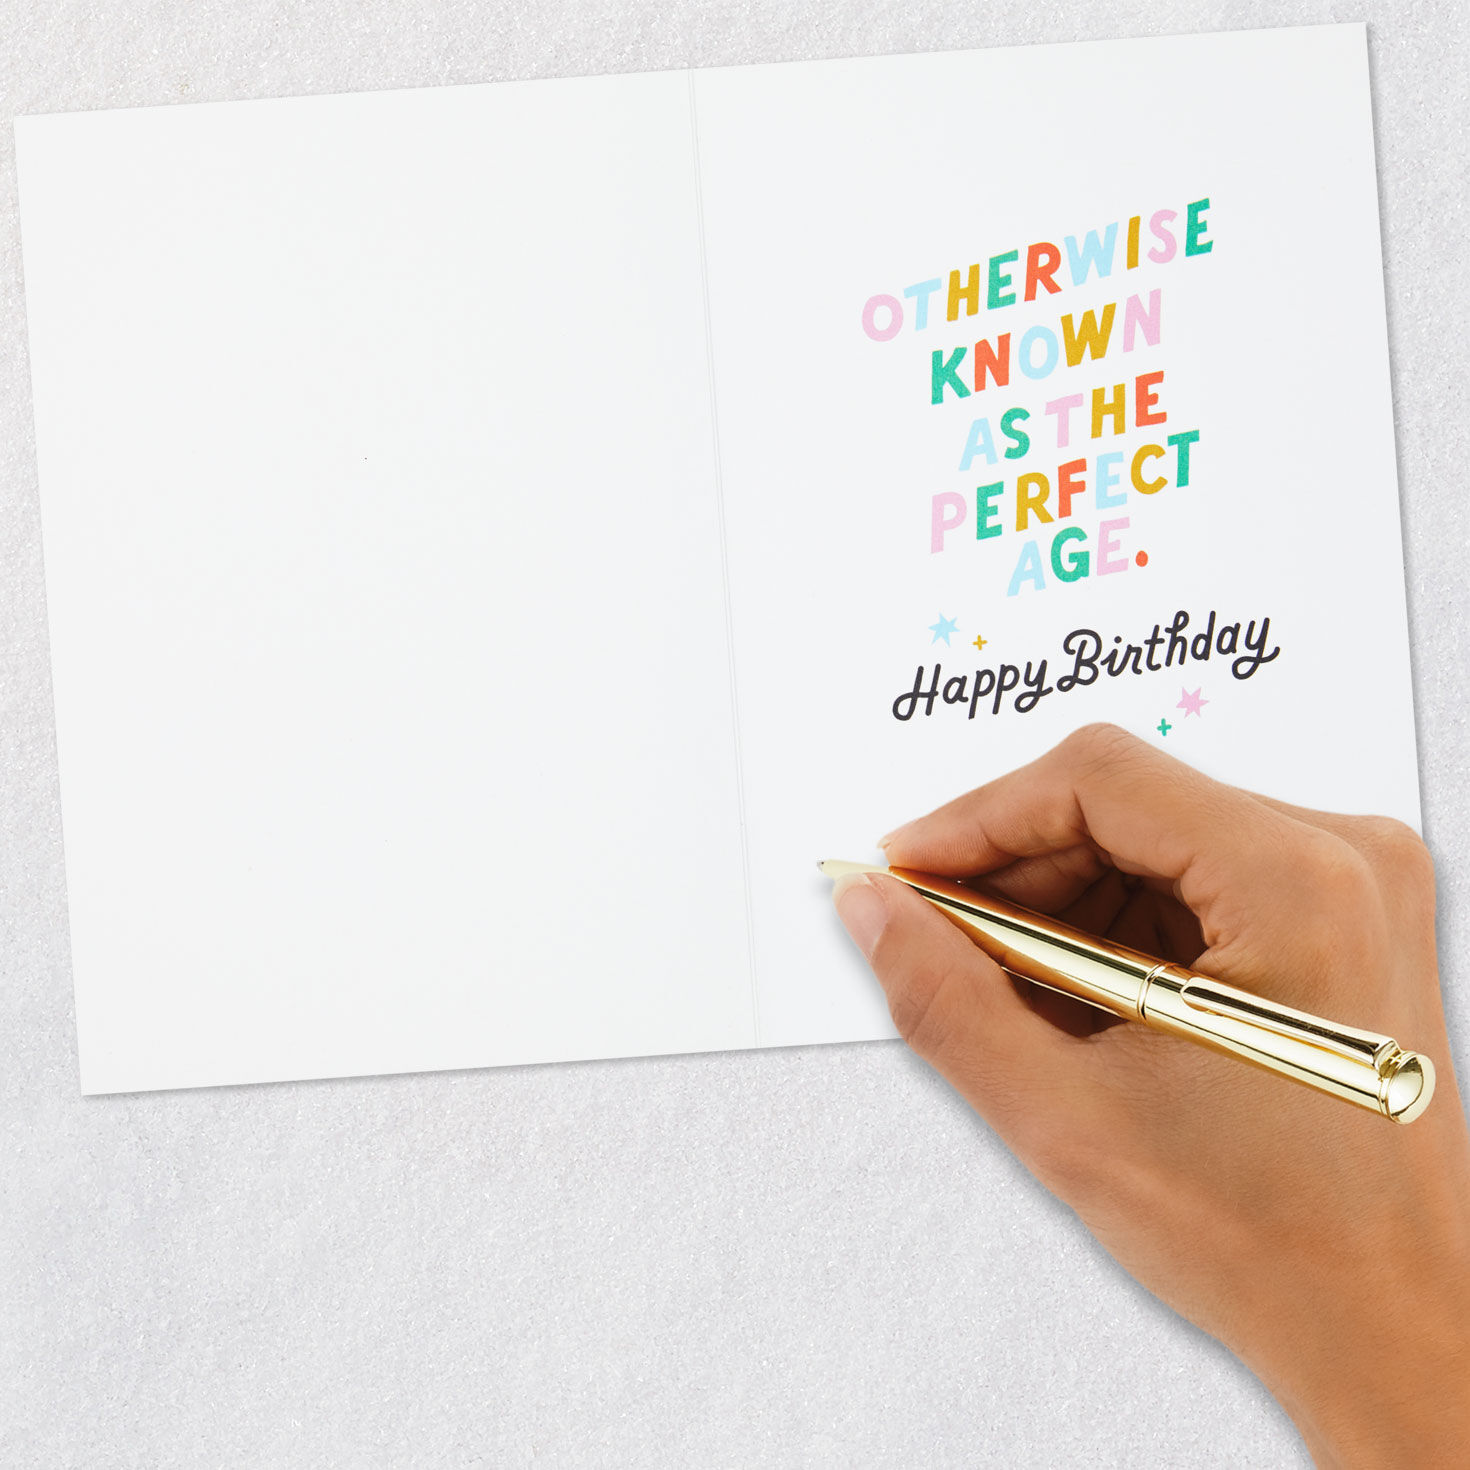 OTHERWISE
KNOWN
AS THE
PERFECT
AGE.
Happy Birthday